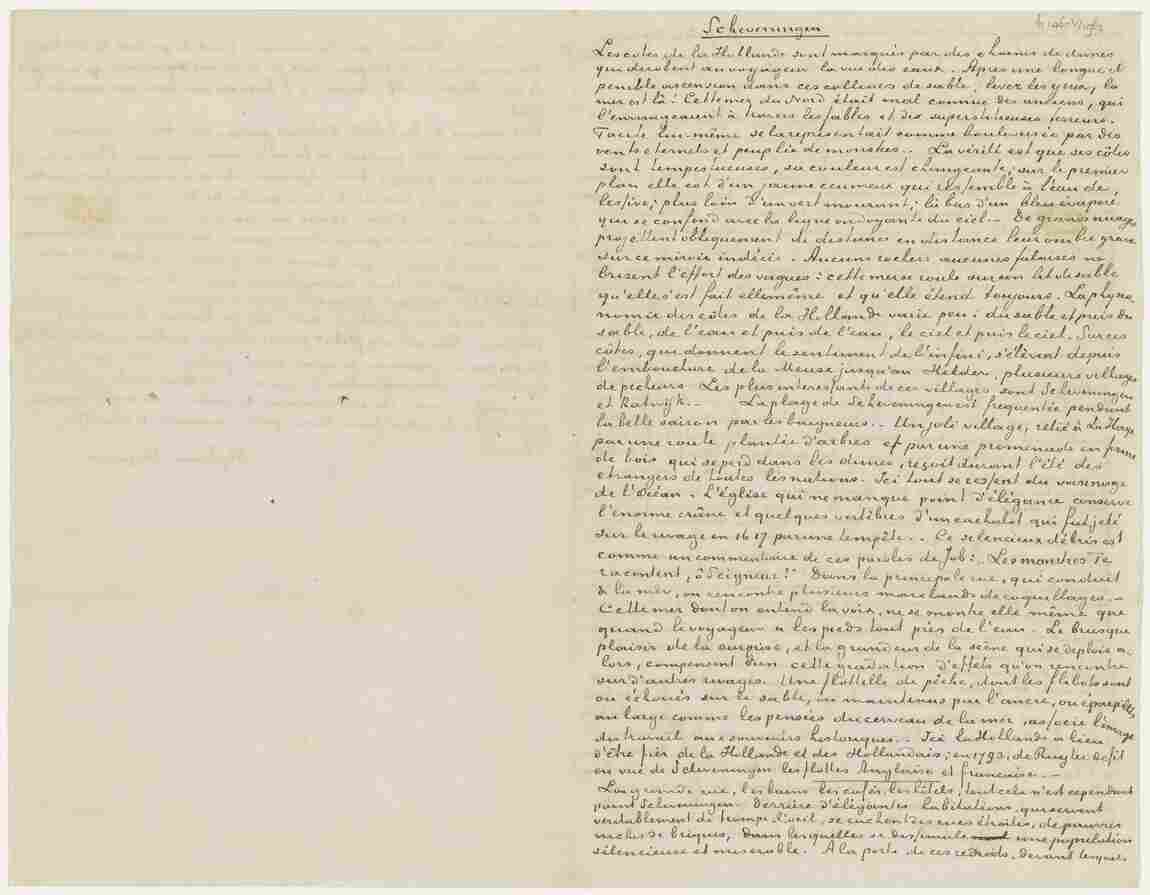 Scheveningen
Les cotes de la Hollande sont marqués par des chainis de dunes
qui derobent au voyageur la vue des eaux. Apres une longue et
penible ascension dans ces collines de sable, levez les yeux, la
mer est là! Cette mer du Nord était mal connue des anciens, qui
l'envisageaient à travers les fables et des superstitieuses terreurs.
Tacite lui-même se la representait comme bouleversée par des
vents eternels et peuplée de monstres. La vérité est que ses côtes
sont tempestueuses, sa couleur est changeante; sur le premier
plan elle est d'un jaune ecumeux qui ressemble à l'eau de
lessive; plus loin d'un vert mourant; là bas d'un bleu évaporé
qui se confond avec la ligne ondoyante du ciel. De grands nuages
projettent obliquement de distance en distance leur ombre grave
sur ce miroir indécis. Aucuns rochers aucunes falaises ne
brisent l'effort des vagues: cette mer se roule sur son lit de sable
qu'elle s'est fait ellemême et qu'elle étend toujours. La physio
nomie des côtes de la Hollande varie peu: du sable et puis du
sable, de l'eau et puis de l'eau, le ciel et puis le ciel. Sur ces
côtes, qui donnent le sentiment de l'infini, s'élèvent depuis
l'embouchure de la Meuse jusqu'au Helder, plusieurs villages
de pecheurs. Les plus interessants de ces villages sont Scheveningen
et Katwijk. La plage de Scheveningen est frequentée pendant
la belle saison par les baigneurs. Un joli village, relié à La Haye
par une route plantée d'arbres et par une promenade en forme
de bois qui se perd dans les dunes, reçoit durant l'été des
etrangers de toutes les nations. Ici tout se ressent du voisinage
de l'Océan. L'église qui ne manque point d'élégance conserve
l'enorme crâne et quelques vertèbres d'un cachalot qui fut jeté
sur le rivage en 1617 par une tempête. Ce silencieux débris est
comme un commentaire de ces paroles de Job: „Les monstres Te
racontent, ô Seigneur!" Dans la principale rue, qui conduit
à la mer, on rencontre plusieurs marchands de coquillages.
Cette mer dont on entend la voix, ne se montre elle même que
quand le voyageur a les pieds tout près de l'eau. Le brusque
plaisir de la surprise, et la grandeur de la scène qui se deploie a-
lors, compensent bien cette gradation d'effets qu'on rencontre
sur d'autres rivages. Une flottille de pêche, dont les flibots sont
ou échoués sur le sable, ou maintenus par l'ancre, ou éparpillés
au large comme les pensées du cerveau de la mer, associe l'image
du travail aux souvenirs historiques. Ici la Hollande a lieu
d'être fièr de la Hollande et des Hollandais; en 1793, de Ruyter defit
en vue de Scheveningen les flottes Anglaise et française.
La grande rue, les bains les cafés, les hôtels, tout cela n'est cependant
point Scheveningen. Derrière d'élégantes habitations, qui servent
veritablement de trompe l'oeil, se cachent des rues étroites, de pauvres
niches de briques, dans lesquelles se dissimule une population
silencieuse et miserable. A la porte de ces reduits, devant lesquels